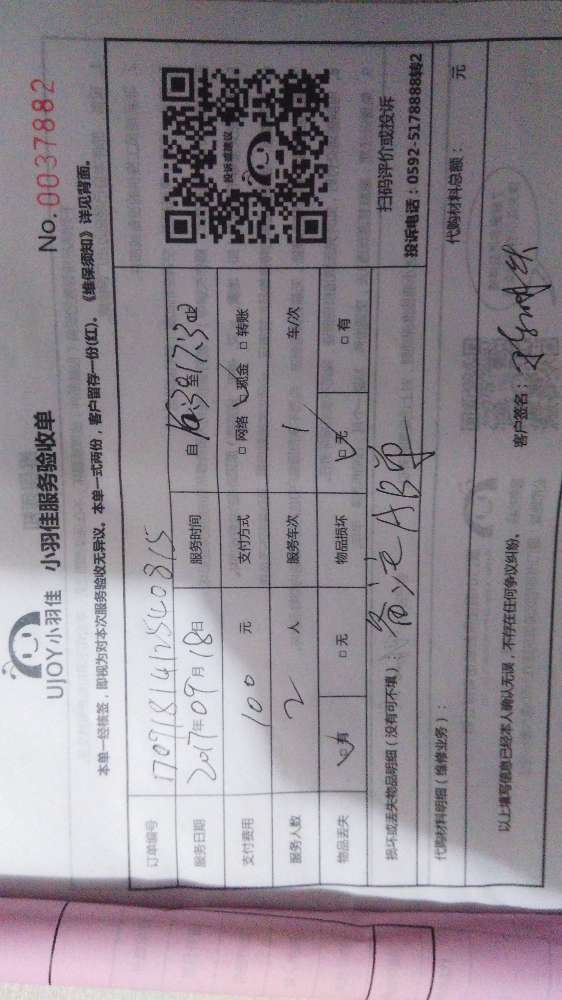 UJOY小羽佳 小羽佳服务验收单 No.0037882
本单一经核签，即视为对本次服务验收无异议。本单一式两份，客户留存一份(红)。《维保须知》详见背面。
订单编号 1709181412540815
服务日期 2017年09月18日 服务时间 自16:30至17:30止
支付费用 100 元 支付方式 □网络 □现金 □转账
服务人数 2 人 服务车次 1 车/次
物品丢失 □有 □无 物品损坏 □无 □有
投诉或建议
扫码评价或投诉
投诉电话：0592-5178888转2
损坏或丢失物品明细（没有可不填）： 备注AB单
代购材料明细（维修业务）： 代购材料总额： 元
以上填写信息已经本人确认无误，不存在任何争议纠纷。 客户签名：